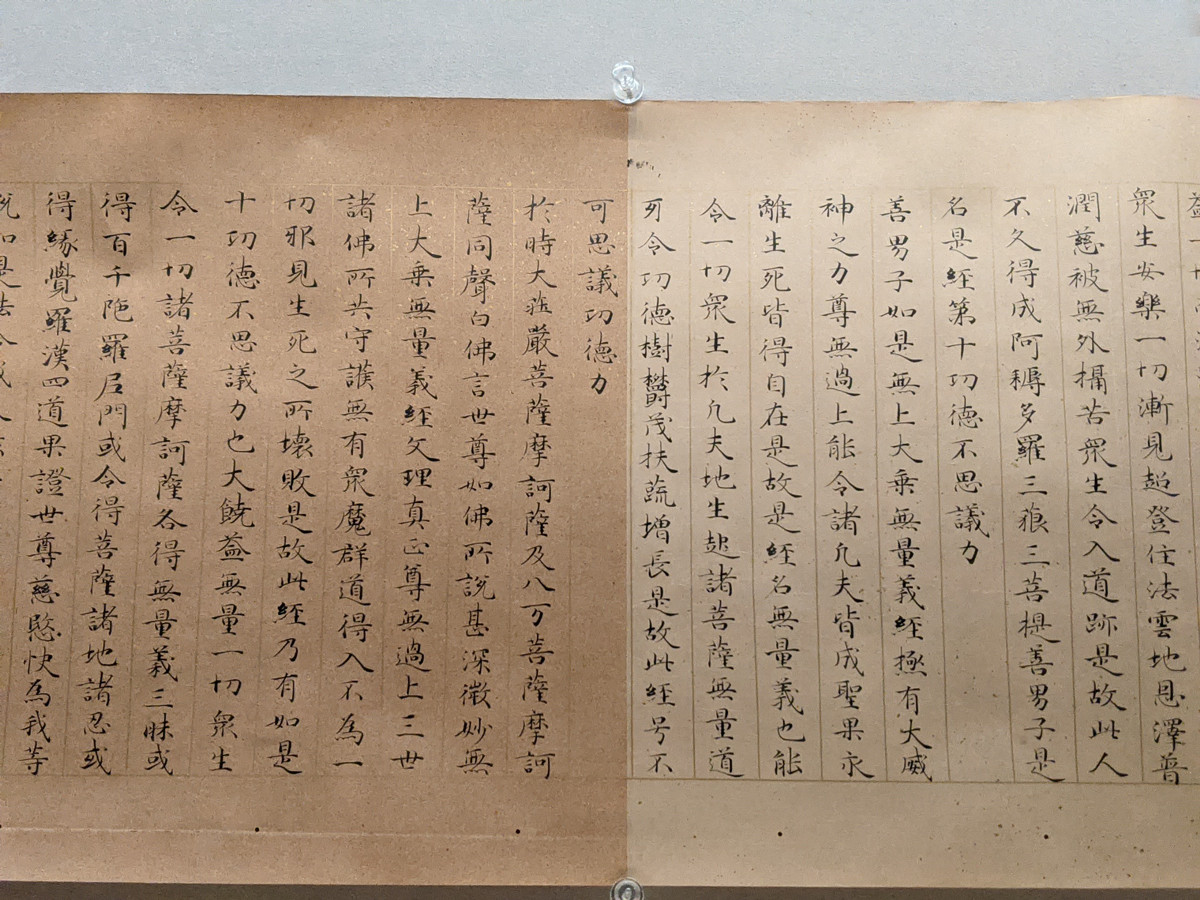 眾生安樂一切漸見超登住法雲地恩澤普
潤慈被無外攝苦眾生令入道跡是故此人
不久得成阿耨多羅三藐三菩提善男子是
名是經第十功德不思議力
善男子如是無上大乘無量義經極有大威
神之力尊無過上能令諸凡夫皆成聖果永
離生死皆得自在是故是經名無量義也能
令一切眾生於凡夫地生起諸菩薩無量道
牙令功德樹欝茂扶蔬增長是故此經号不
可思議功德力
於時大莊嚴菩薩摩訶薩及八万菩薩摩訶
薩同聲白佛言世尊如佛所說甚深微妙無
上大乘無量義經文理真正尊無過上三世
諸佛所共守護無有眾魔群道得入不為一
切邪見生死之所壞敗是故此經乃有如是
十功德不思議力也大饒益無量一切眾生
令一切諸菩薩摩訶薩各得無量義三昧或
得百千陁羅尼門或令得菩薩諸地諸忍或
得緣覺羅漢四道果證世尊慈愍快為我等
說如是法令我